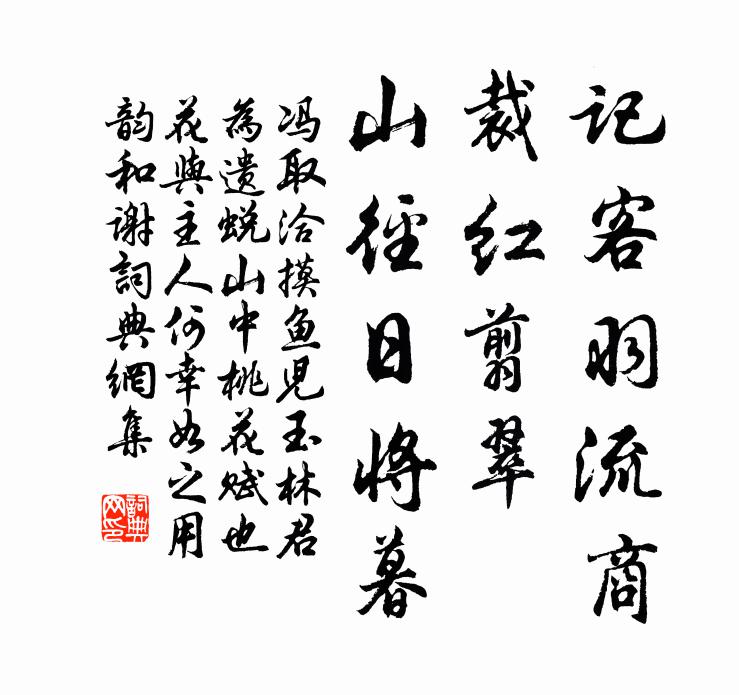 记客羽流商
裁红剪翠
山径日将暮
冯取洽摸鱼儿玉林君
为遗蜕山中桃花赋也
花与主人何幸如之用
韵和谢词典網集
詞典网印